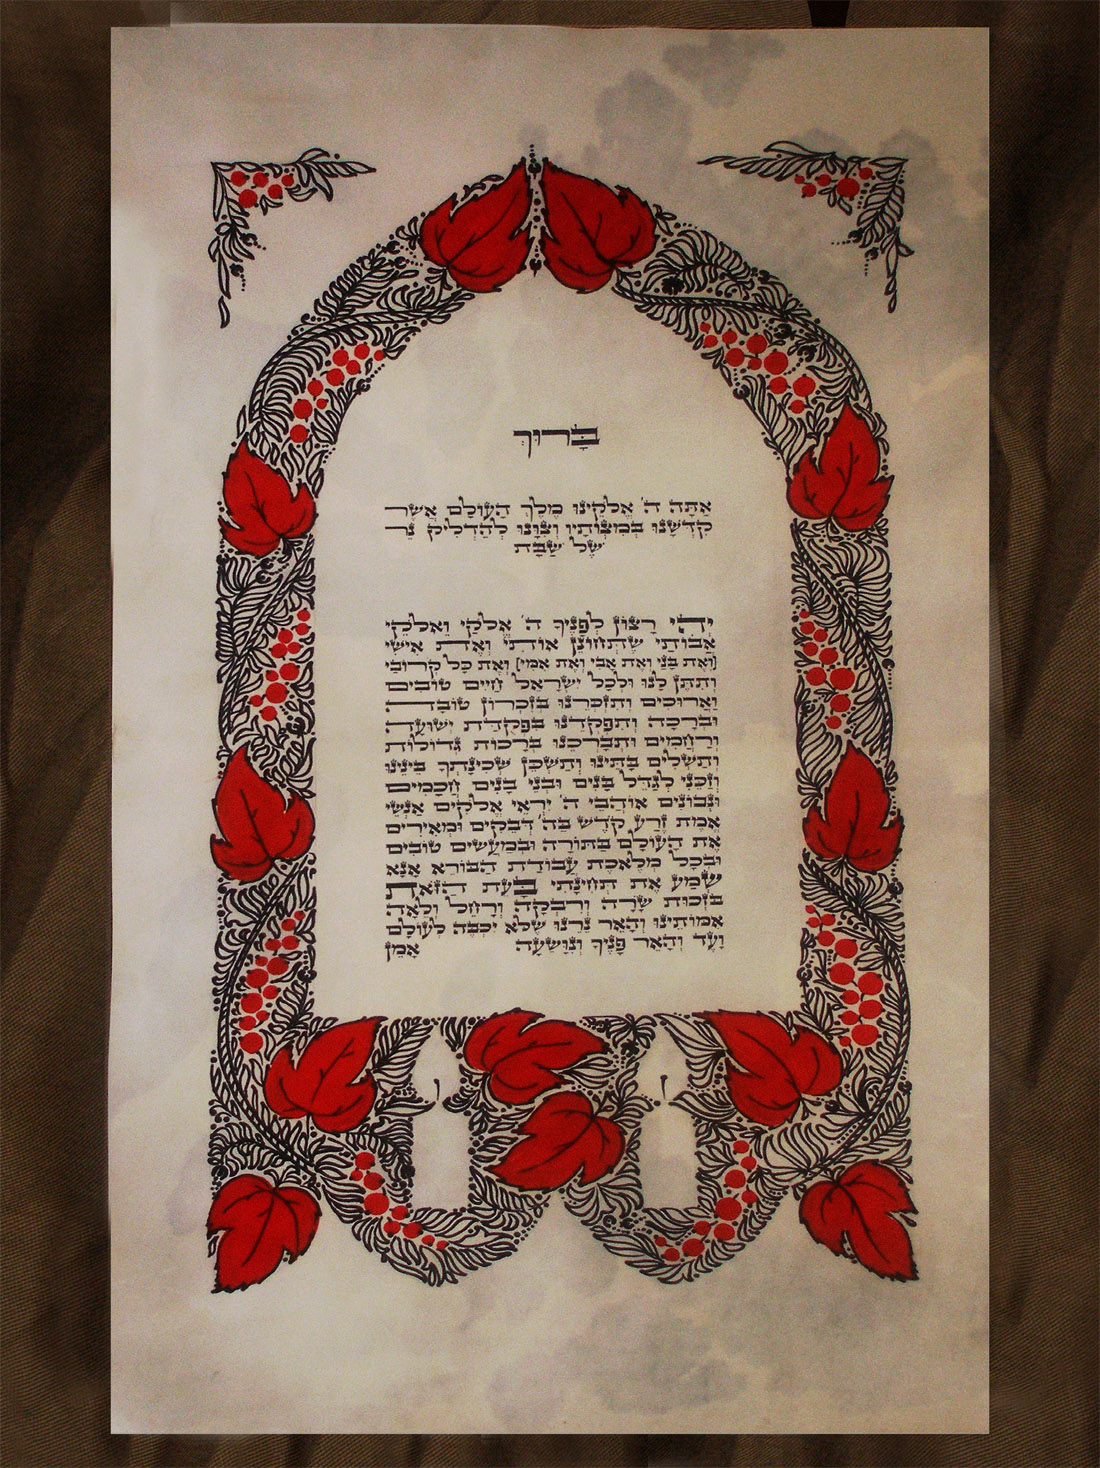 בָּרוּךְ
אַתָּה ה' אֱלֹקֵינוּ מֶלֶךְ הָעוֹלָם אֲשֶׁר
קִדְּשָׁנוּ בְּמִצְוֹתָיו וְצִוָּנוּ לְהַדְלִיק נֵר
שֶׁל שַׁבָּת
יְהִי רָצוֹן לְפָנֶיךָ ה' אֱלֹקַי וֵאלֹקֵי
אֲבוֹתַי שֶׁתְּחוֹנֵן אוֹתִי וְאֶת אִישִׁי
(וְאֶת בָּנַי וְאֶת אָבִי וְאֶת אִמִּי) וְאֶת כָּל קְרוֹבַי
וְתִתֵּן לָנוּ וּלְכָל יִשְׂרָאֵל חַיִּים טוֹבִים
וַאֲרוּכִים וְתִזְכְּרֵנוּ בְּזִכְרוֹן טוֹבָה
וּבְרָכָה וְתִפְקְדֵנוּ בִּפְקֻדַּת יְשׁוּעָה
וְרַחֲמִים וּתְבָרְכֵנוּ בְּרָכוֹת גְּדוֹלוֹת
וְתַשְׁלִים בָּתֵּינוּ וְתַשְׁכֵּן שְׁכִינָתְךָ בֵּינֵינוּ
וְזַכֵּנִי לְגַדֵּל בָּנִים וּבְנֵי בָנִים חֲכָמִים
וּנְבוֹנִים אוֹהֲבֵי ה' יִרְאֵי אֱלֹקִים אַנְשֵׁי
אֱמֶת זֶרַע קֹדֶשׁ בַּה' דְּבֵקִים וּמְאִירִים
אֶת הָעוֹלָם בַּתּוֹרָה וּבְמַעֲשִׂים טוֹבִים
וּבְכָל מְלֶאכֶת עֲבוֹדַת הַבּוֹרֵא אָנָּא
שְׁמַע אֶת תְּחִינָּתִי בָּעֵת הַזֹּאת
בִּזְכוּת שָׂרָה וְרִבְקָה וְרָחֵל וְלֵאָה
אִמּוֹתֵינוּ וְהָאֵר נֵרֵנוּ שֶׁלֹּא יִכְבֶּה לְעוֹלָם
וָעֶד וְהָאֵר פָּנֶיךָ וְנִוָּשֵׁעָה אָמֵן